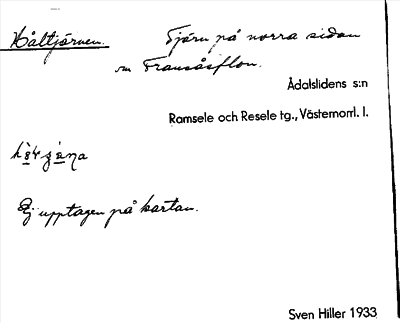 Håltjärnen. Tjärn på norra sidan
om Transåsflon.
Ådalslidens s:n
Ramsele och Resele tg., Västernorrl. l.
Ej upptagen på kartan.
Sven Hiller 1933